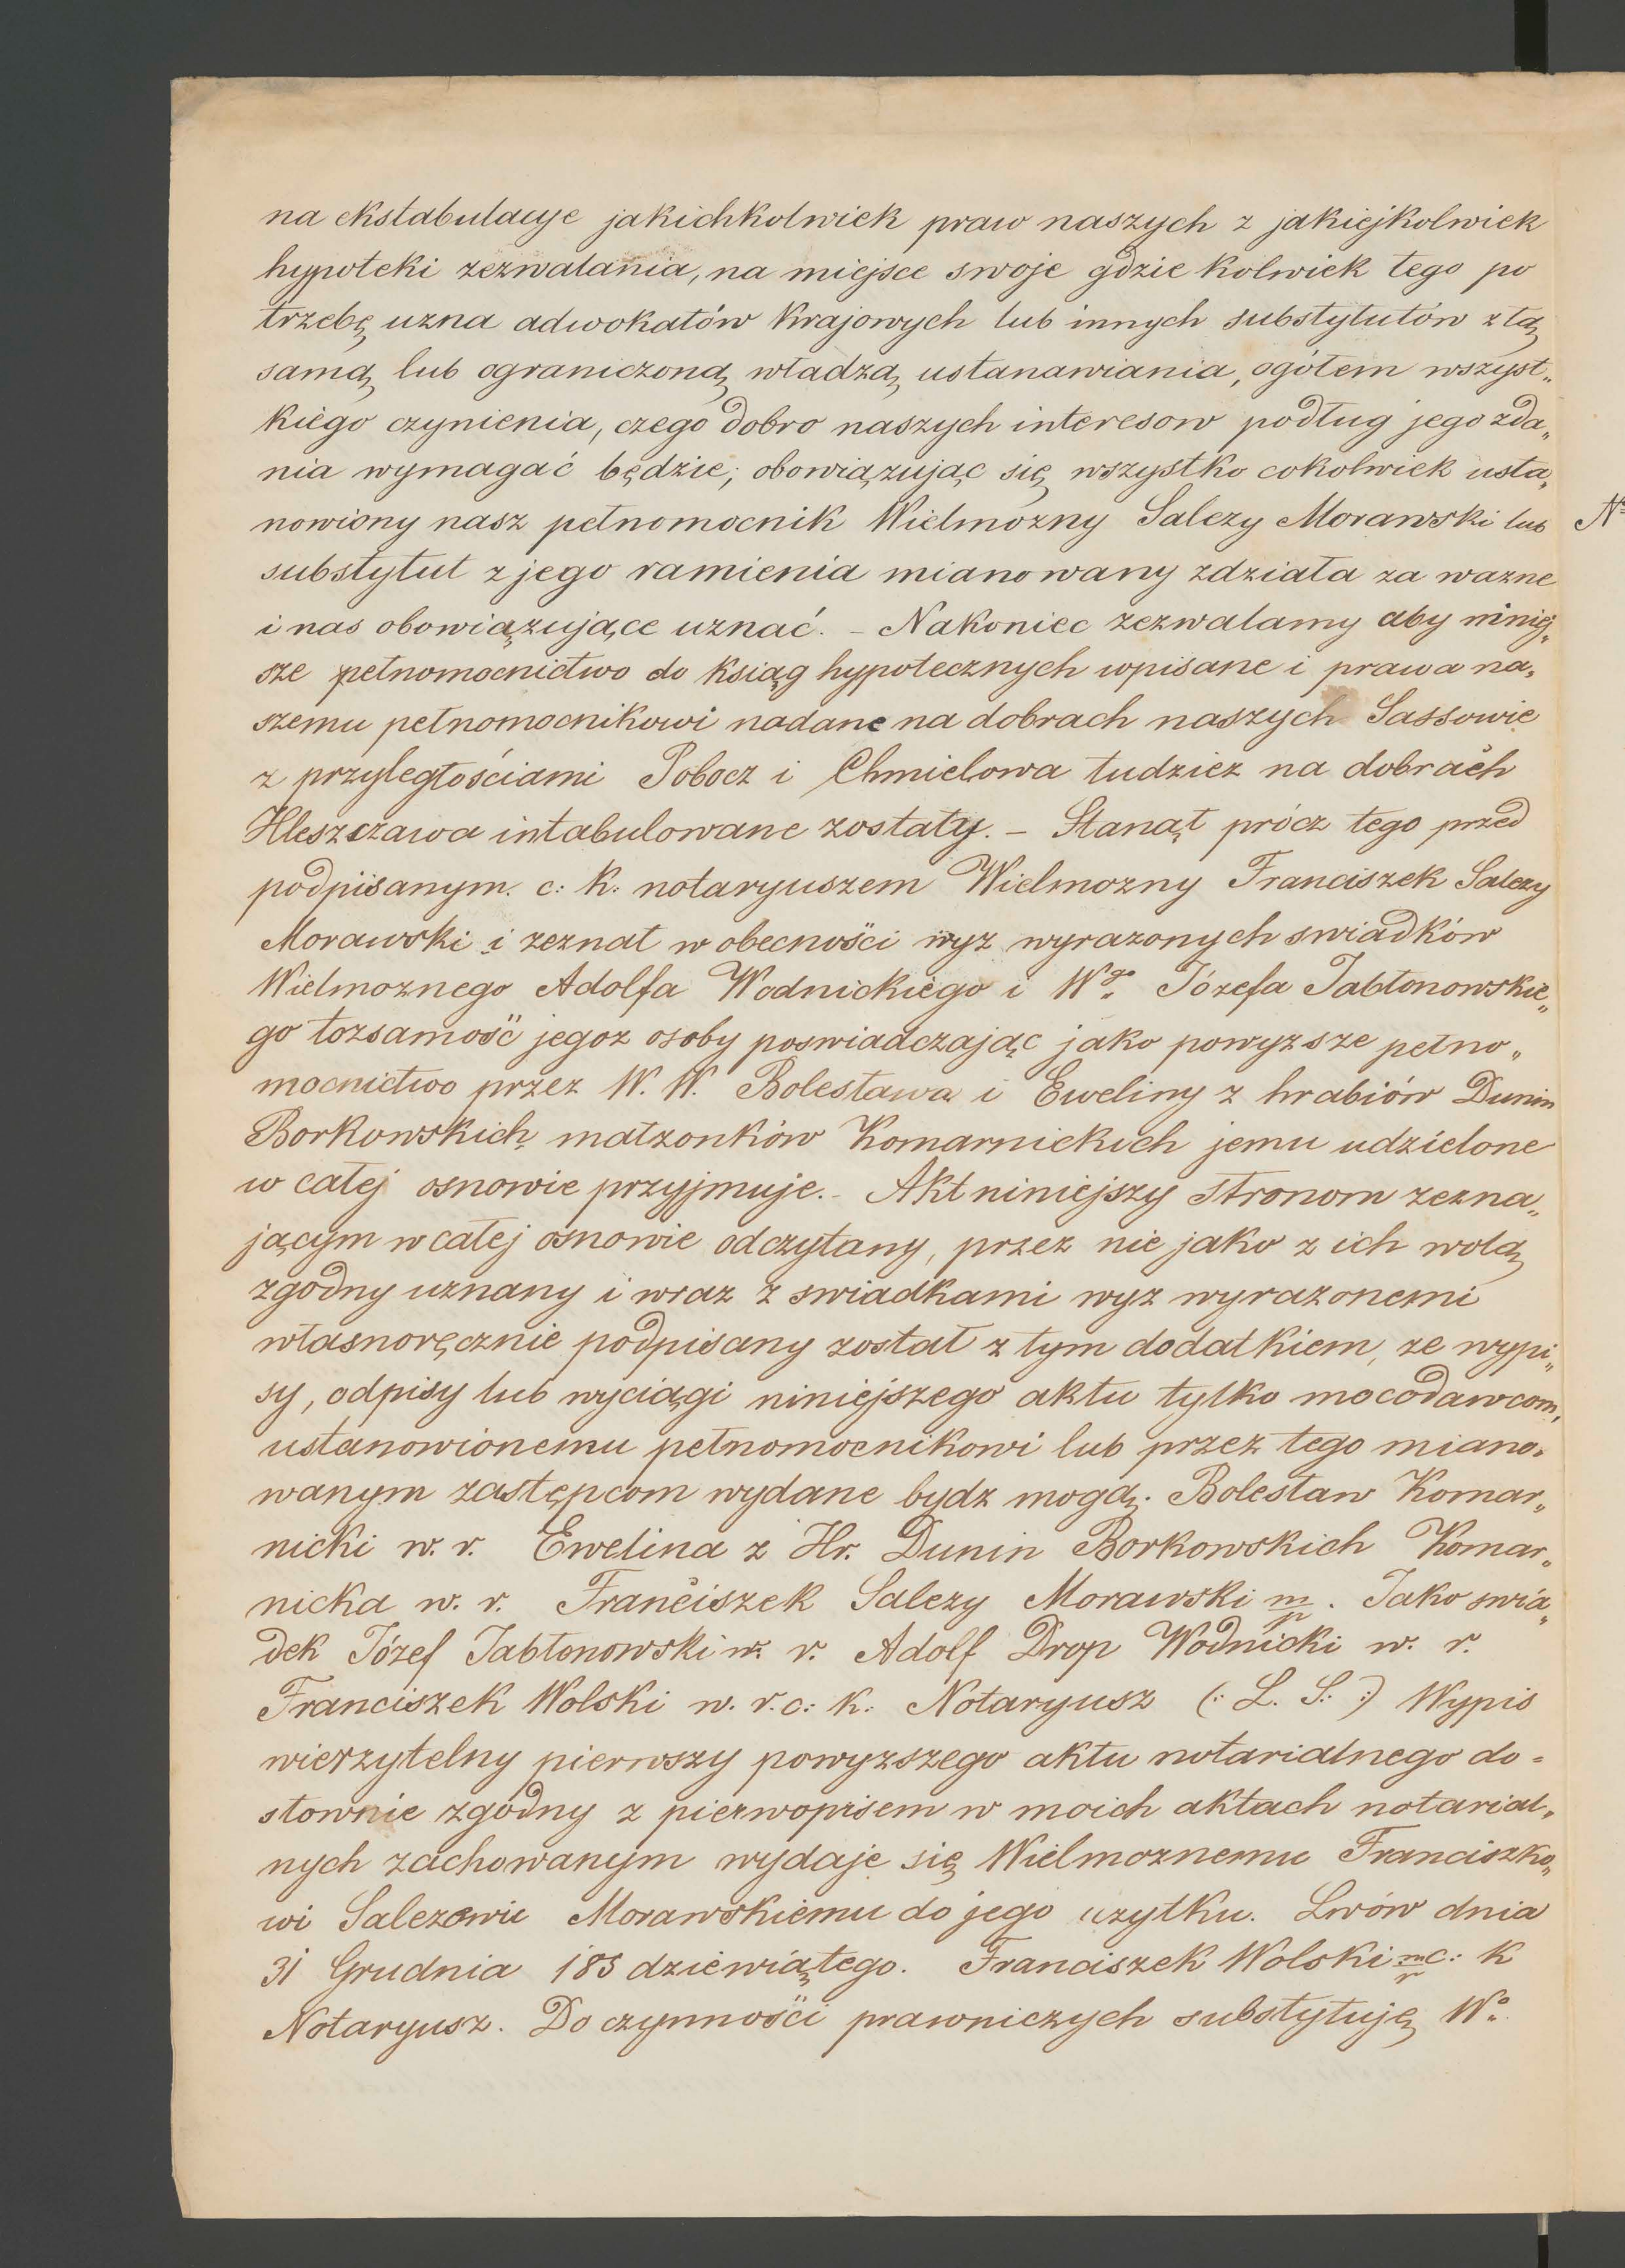 na ekstabulacye jakichkolwiek praw naszych z jakiejkolwiek
hypoteki zezwalania, na miejsce swoje gdzie kolwiek tego po
trzebę uzna adwokatów krajowych lub innych substytutów z tą
samą lub ograniczoną władzą ustanawiania, ogółem wszyst„
kiego czynienia, czego dobro naszych interesow podług jego zda„
nia wymagać będzie, obowiązując się wszystko cokolwiek usta„
nowiony nasz pełnomocnik Wielmozny Salezy Morawski lub
substytut z jego ramienia mianowany zdziała za wazne
i nas obowiązujące uznać. – Nakoniec zezwalamy aby niniej„
sze pełnomocnictwo do ksiąg hypotecznych wpisane i prawa na„
szemu pełnomocnikowi nadane na dobrach naszych Sassowie
z przyległościami Pobocz i Chmielowa tudziez na dobrach
Hleszczawa intabulowane zostały. – Stanął prócz tego przed
podpisanym c: k: notaryuszem Wielmozny Franciszek Salezy
Morawski i zeznał w obecności wyz wyrazonych swiadków
Wielmoznego Adolfa Wodnickiego i Wgo Józefa Jabłonowskie„
go tozsamość jegoz osoby poswiadczając jako powyzsze pełno„
mocnictwo przez W. W. Bolesława i Eweliny z hrabiów Dunin
Borkowskich małzonków Komarnickich jemu udzielone
w całej osnowie przyjmuje. – Akt niniejszy stronom zezna„
jącym w całej osnowie odczytany, przez nie jako z ich wolą
zgodny uznany i wraz z swiadkami wyz wyrazonemi
własnoręcznie podpisany został z tym dodatkiem, ze wypi„
sy, odpisy lub wyciągi niniejszego aktu tylko mocodawcom,
ustanowionemu pełnomocnikowi lub przez tego miano„
wanym zastępcom wydane bydz mogą. Bolesław Komar„
nicki w. r. Ewelina z Hr. Dunin Borkowskich Komar„
nicka w. r. Franciszek Salezy Morawski mp. Jako swia„
dek Józef Jabłonowski w. r. Adolf Drop Wodnicki w. r.
Franciszek Wolski w. r. c: k: Notaryusz (: L. S. :) Wypis
wierzytelny pierwszy powyzszego aktu notarialnego do=
słownie zgodny z pierwopisem w moich aktach notarial„
nych zachowanym wydaje się Wielmoznemu Franciszko„
wi Salezowi Morawskiemu do jego uzytku. Lwów dnia
31 Grudnia 185 dziewiątego. Franciszek Wolski mp c: k
Notaryusz. Do czynności prawniczych substytuję Wo